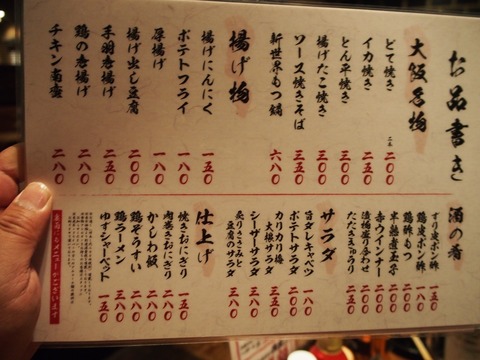 お品書き
大阪名物
どて焼き 二本 二〇〇
イカ焼き 二五〇
とん平焼き 三〇〇
揚げたこ焼き 三〇〇
ソース焼きそば 三五〇
新世界もつ鍋 六八〇
揚げ物
揚げにんにく 一五〇
ポテトフライ 一八〇
厚揚げ 一八〇
揚げ出し豆腐 二〇〇
手羽唐揚げ 二五〇
鶏の唐揚げ 二八〇
チキン南蛮 二八〇
酒の肴
すり身ポン酢 一五〇
鶏皮ポン酢
鶏酢もつ
半熟煮玉子
赤ウインナー
漬物盛り合わせ
たたききゅうり
サラダ
旨ダレキャベツ 一八〇
ポテトサラダ
カリカリ梅大根サラダ
シーザーサラダ 三八〇
炙りささみと豆腐のサラダ 三八〇
仕上げ
焼きおにぎり 一五〇
肉巻きおにぎり
かしわ飯
鶏ぞうすい
鶏ラーメン 三八〇
ゆずシャーベット 一五〇
裏面にもメニューがございます